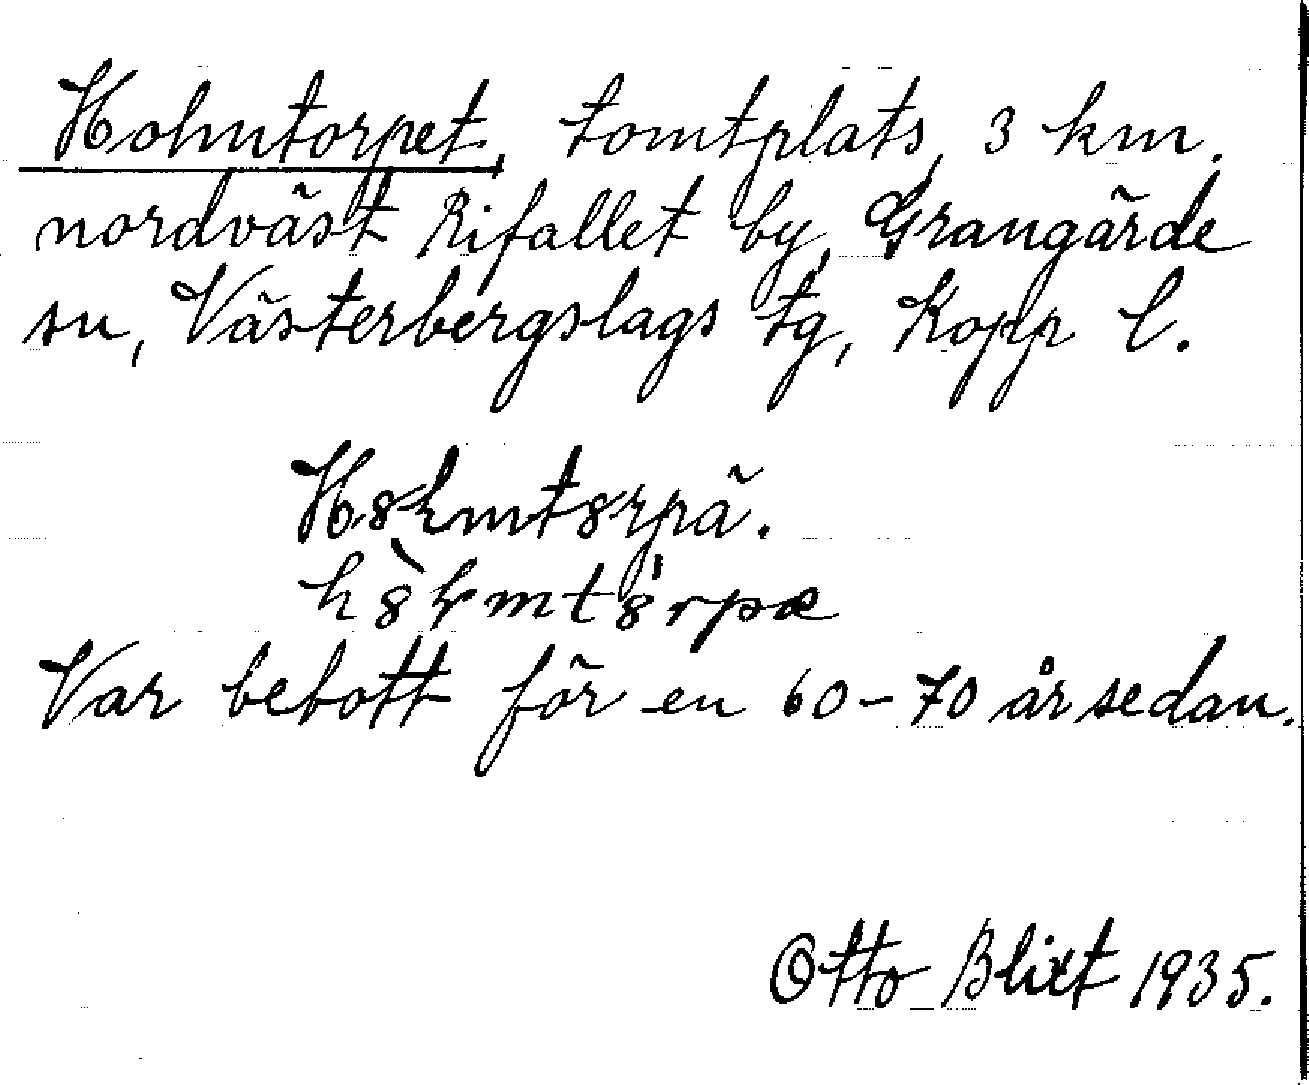 Holmtorpet, tomtplats, 3 km.
nordväst Rifallet by, Grangärde
sn, Västerbergslags tg, Kopp l.
Var bebott för en 60-70 år sedan.
Otto Blixt 1935.